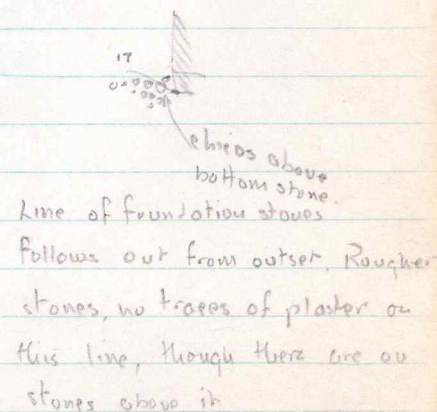 17
above
bottom stone.
Line of foundation stones
follows out from outset. Rougher
stones, no traces of plaster on
this line, though there are on
stones above it